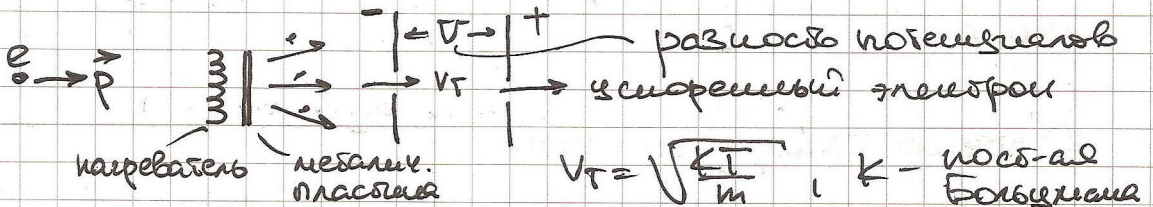 - U +
e p разность потенциалов
VT ускоренный электрон
нагреватель металич. пластина
VT = √(kT/m), k - пост-ая Больцмана